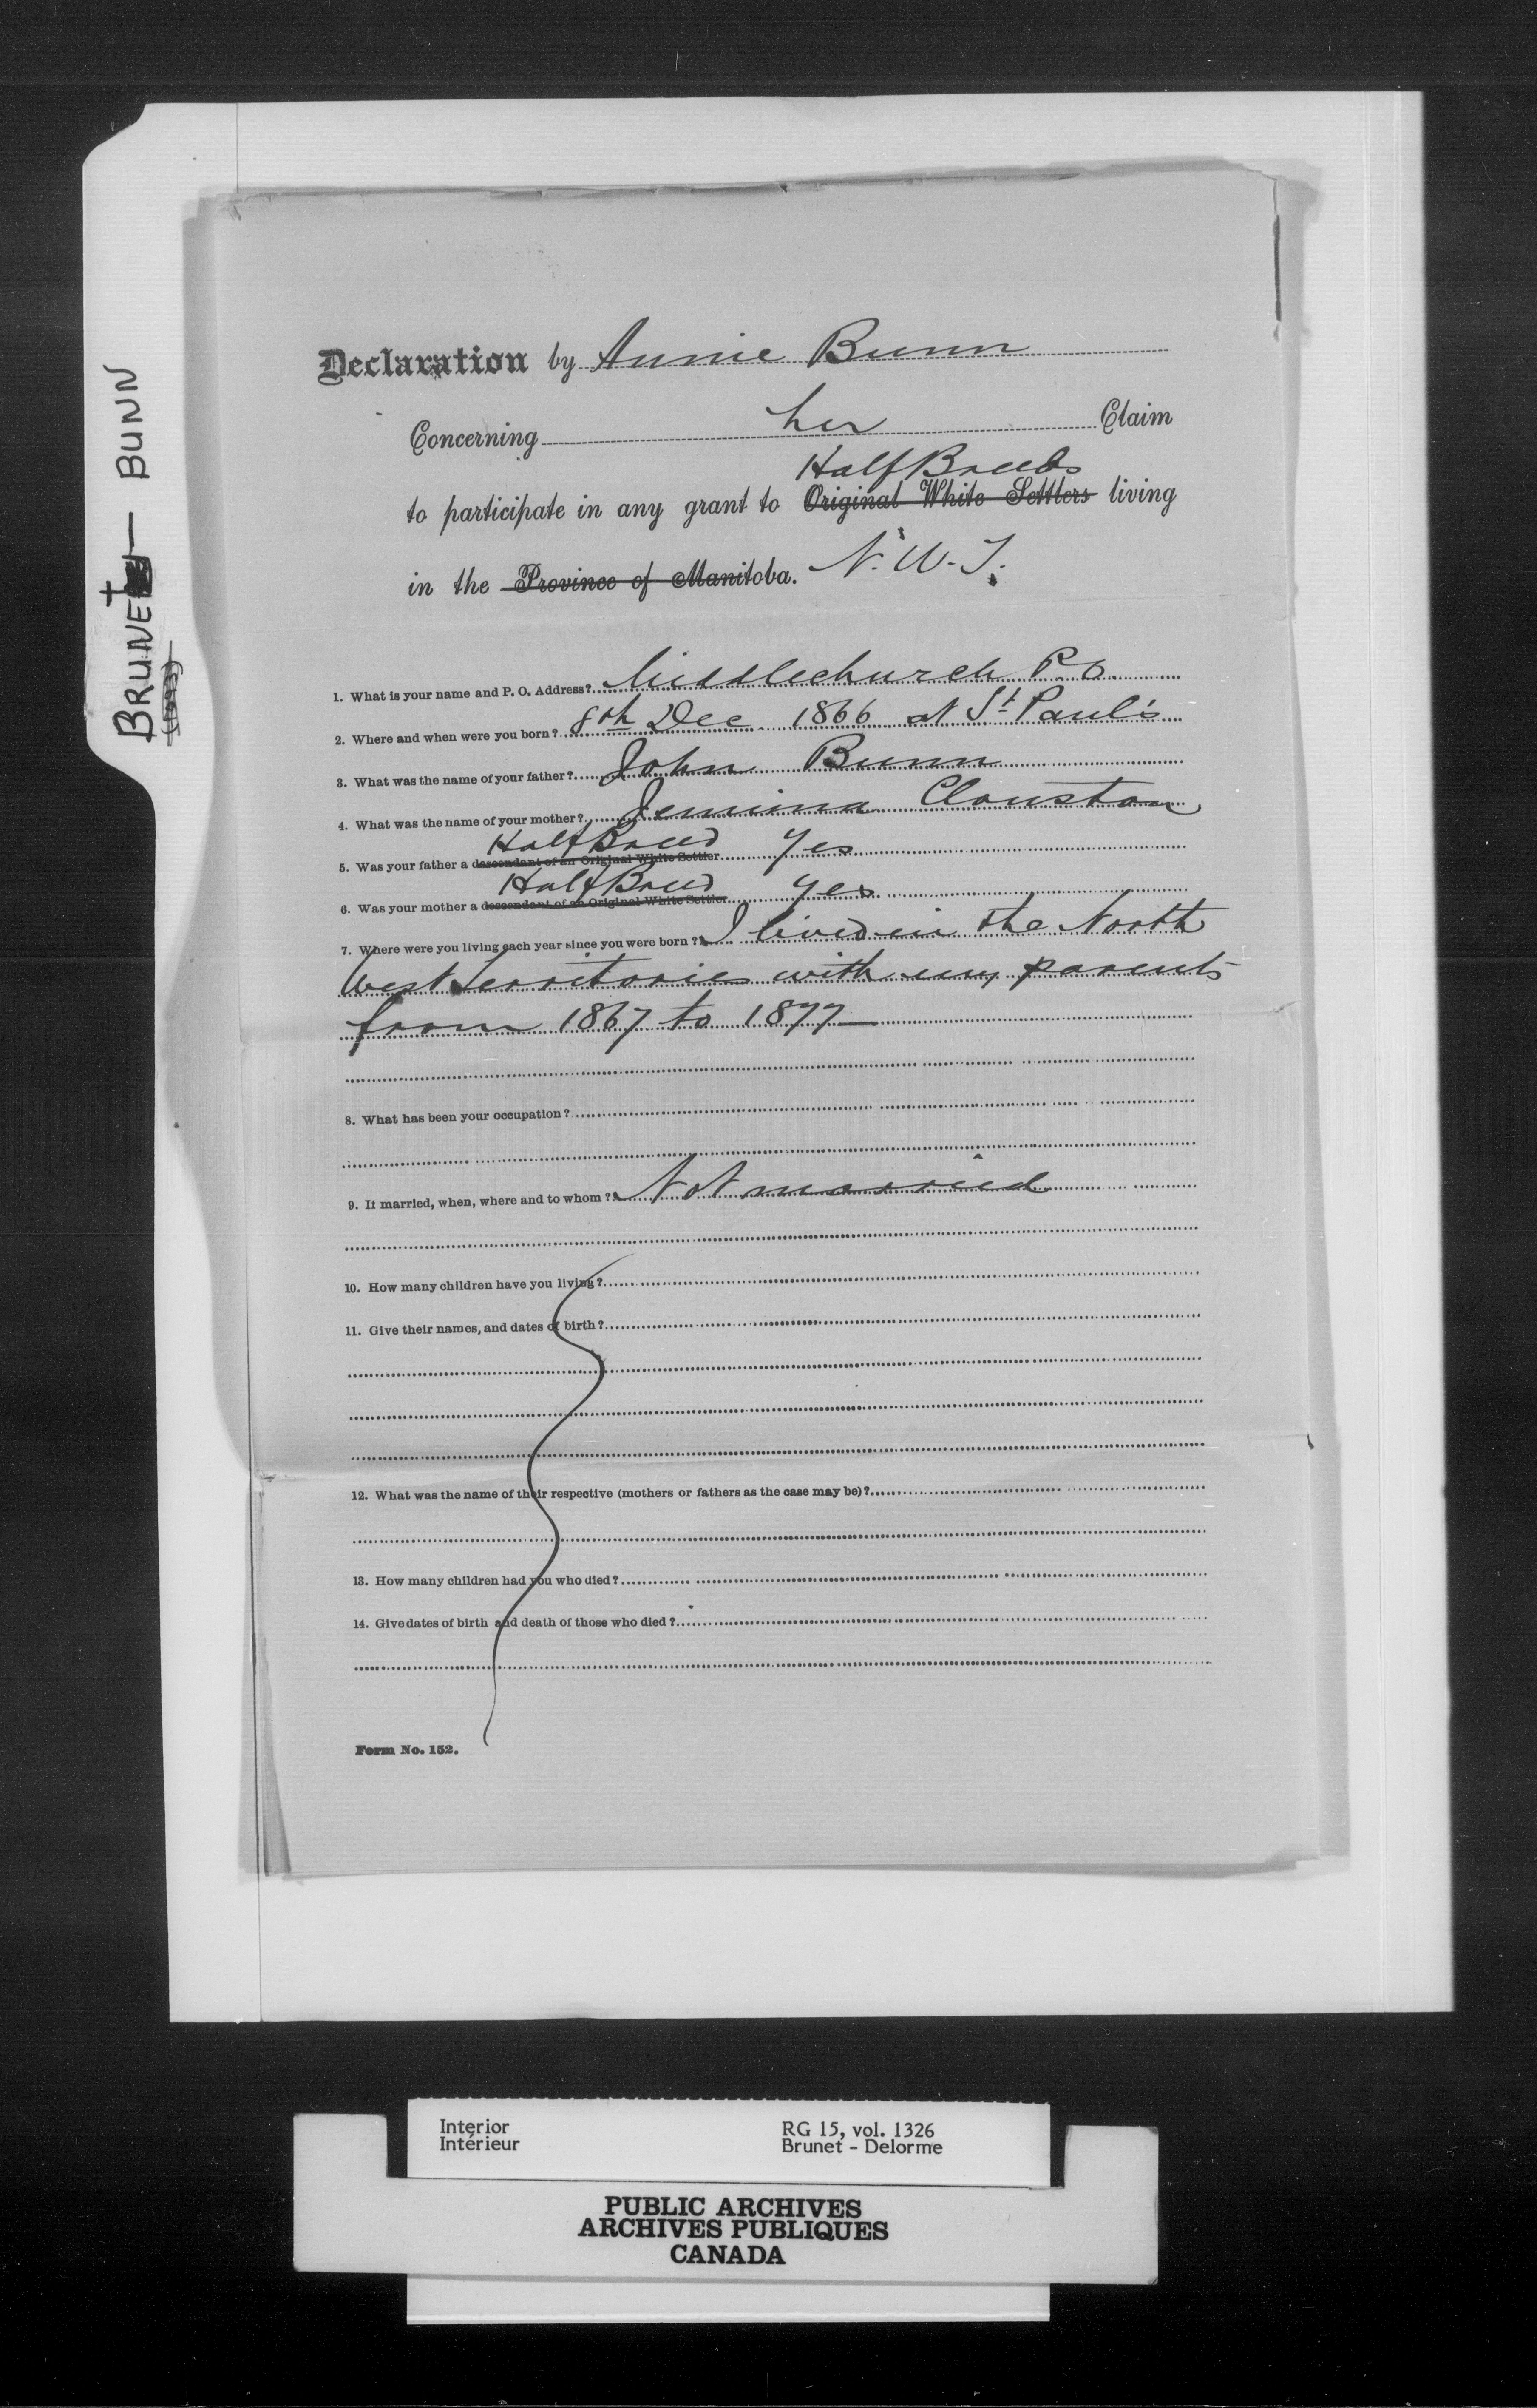 BRUNET — BUNN
Declaration by Annie Bunn
Concerning her Claim
Half Breeds
to participate in any grant to Original White Settlers living
in the Province of Manitoba. N.W.T.
1. What is your name and P. O. Address? Middlechurch P.O.
2. Where and when were you born? 8th Dec 1866 at St Paul's
3. What was the name of your father? John Bunn
4. What was the name of your mother? Jemima Clouston
Half Breed
5. Was your father a descendant of an Original White Settler Yes
Half Breed
6. Was your mother a descendant of an Original White Settler Yes
7. Where were you living each year since you were born? I lived in the North
West Territories with my parents
from 1867 to 1877
8. What has been your occupation?
9. If married, when, where and to whom? Not married
10. How many children have you living?
11. Give their names, and dates of birth?
12. What was the name of their respective (mothers or fathers as the case may be)?
13. How many children had you who died?
14. Give dates of birth and death of those who died?
Form No. 152.
Interior RG 15, vol. 1326
Intérieur Brunet - Delorme
PUBLIC ARCHIVES
ARCHIVES PUBLIQUES
CANADA